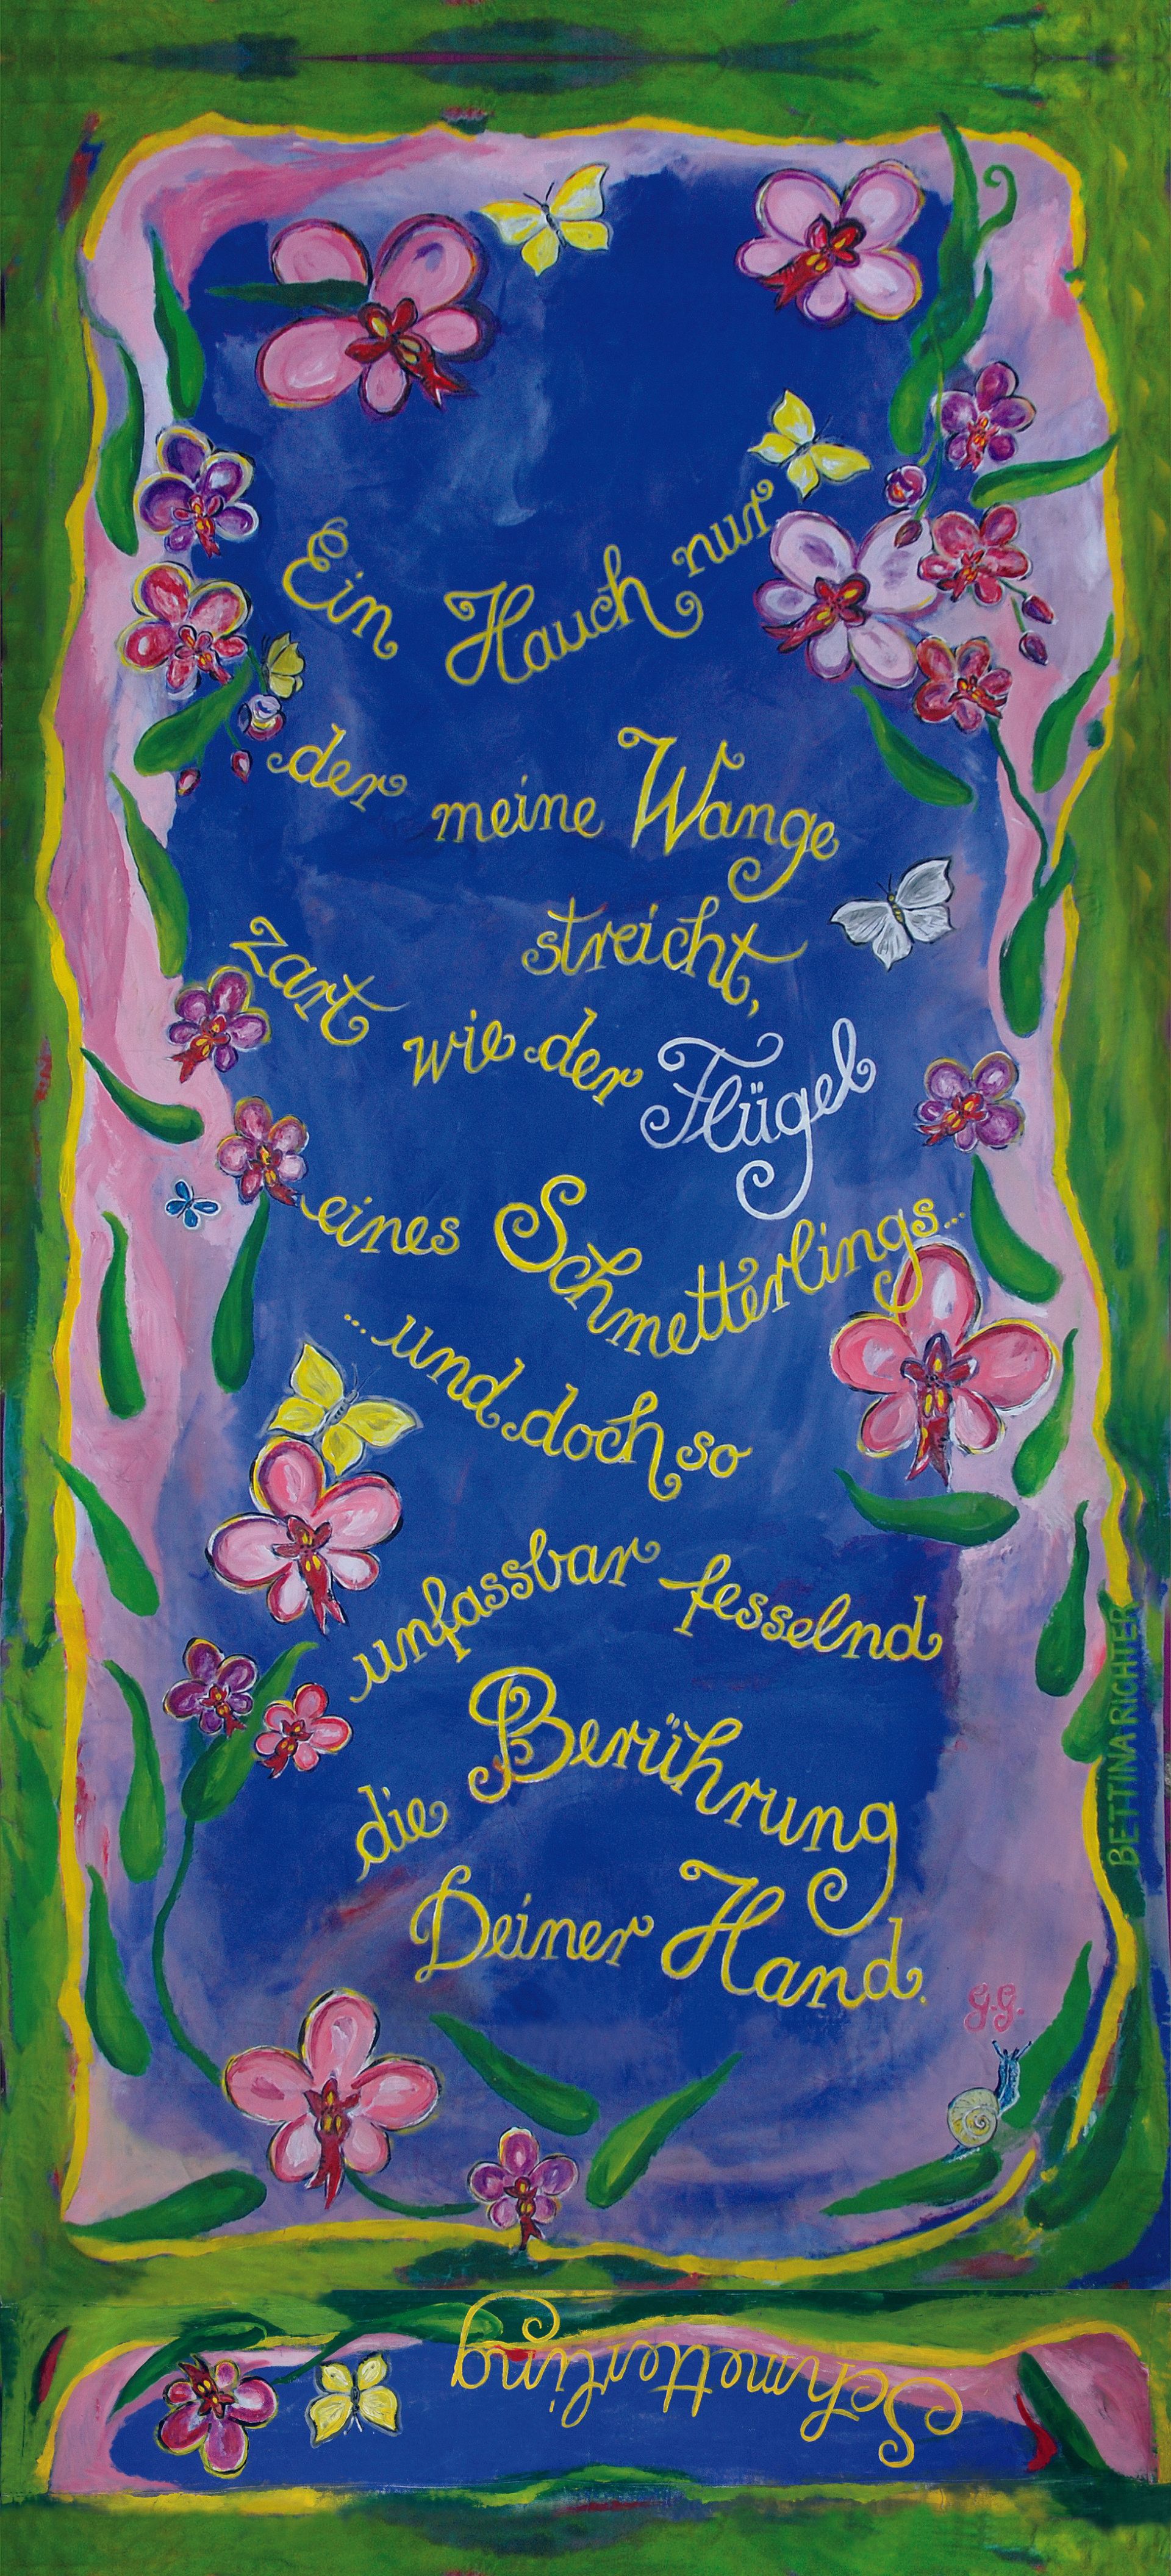 Ein Hauch nur
der meine Wange
streicht,
zart wie der Flügel
eines Schmetterlings...
...und doch so
unfassbar fesselnd
die Berührung
Deiner Hand.
g.g.
BETTINA RICHTER
Schmetterling